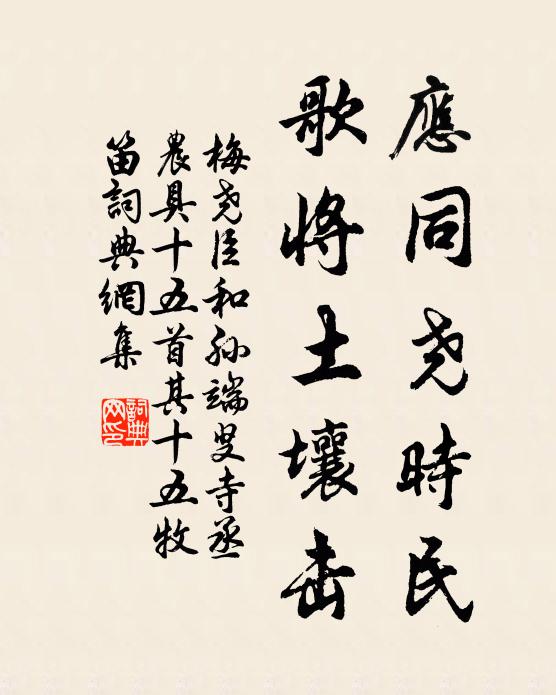 應同尭時民
歌將土壤击
梅尭臣和孙端叟寺丞
農具十五首其十五牧
笛詞典網集
詞典
网印